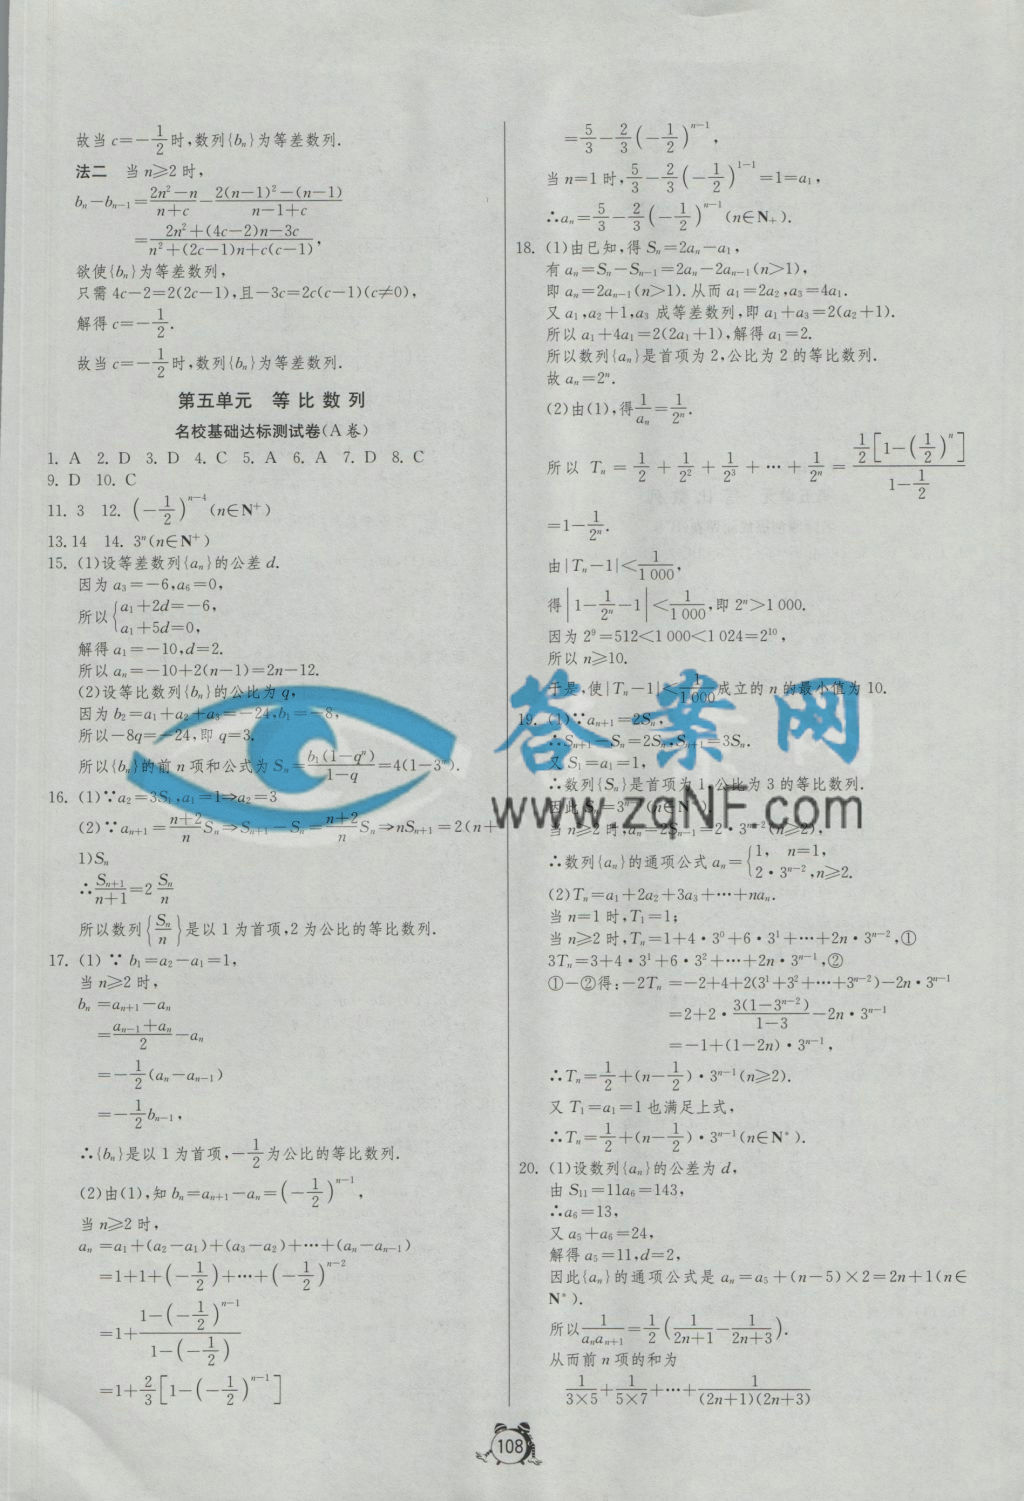 故当c=-1/2时,数列{bₙ}为等差数列.
法二 当n≥2时,
bₙ-bₙ₋₁=(2n²-n)/(n+c)-(2(n-1)²-(n-1))/(n-1+c)
=(2n²+(4c-2)n-3c)/(n²+(2c-1)n+c(c-1)),
欲使{bₙ}为等差数列,
只需4c-2=2(2c-1),且-3c=2c(c-1)(c≠0),
解得c=-1/2.
故当c=-1/2时,数列{bₙ}为等差数列.
第五单元 等比数列
名校基础达标测试卷(A卷)
1. A 2. D 3. D 4. C 5. A 6. A 7. D 8. C
9. D 10. C
11. 3 12. (-1/2)ⁿ⁻⁴(n∈N⁺)
13. 14 14. 3ⁿ(n∈N⁺)
15. (1)设等差数列{aₙ}的公差d.
因为a₃=-6,a₆=0,
所以{a₁+2d=-6,
a₁+5d=0,
解得a₁=-10,d=2.
所以aₙ=-10+2(n-1)=2n-12.
(2)设等比数列{bₙ}的公比为q,
因为b₂=a₁+a₂+a₃=-24,b₁=-8,
所以-8q=-24,即q=3.
所以{bₙ}的前n项和公式为Sₙ=b₁(1-qⁿ)/(1-q)=4(1-3ⁿ).
16. (1)∵a₂=3S₁,a₁=1⇒a₂=3
(2)∵aₙ₊₁=(n+2)/n Sₙ⇒Sₙ₊₁-Sₙ=(n+2)/n Sₙ⇒nSₙ₊₁=2(n+
1)Sₙ
∴Sₙ₊₁/(n+1)=2 Sₙ/n
所以数列{Sₙ/n}是以1为首项,2为公比的等比数列.
17. (1)∵b₁=a₂-a₁=1,
当n≥2时,
bₙ=aₙ₊₁-aₙ
=(aₙ₋₁+aₙ)/2-aₙ
=-1/2(aₙ-aₙ₋₁)
=-1/2bₙ₋₁,
∴{bₙ}是以1为首项,-1/2为公比的等比数列.
(2)由(1),知bₙ=aₙ₊₁-aₙ=(-1/2)ⁿ⁻¹,
当n≥2时,
aₙ=a₁+(a₂-a₁)+(a₃-a₂)+…+(aₙ-aₙ₋₁)
=1+1+(-1/2)+…+(-1/2)ⁿ⁻²
=1+(1-(-1/2)ⁿ⁻¹)/(1-(-1/2))
=1+2/3[1-(-1/2)ⁿ⁻¹]
=5/3-2/3(-1/2)ⁿ⁻¹,
当n=1时,5/3-2/3(-1/2)¹⁻¹=1=a₁,
∴aₙ=5/3-2/3(-1/2)ⁿ⁻¹(n∈N₊).
18. (1)由已知,得Sₙ=2aₙ-a₁,
有aₙ=Sₙ-Sₙ₋₁=2aₙ-2aₙ₋₁(n>1),
即aₙ=2aₙ₋₁(n>1).从而a₁=2a₂,a₃=4a₁.
又a₁,a₂+1,a₃成等差数列,即a₁+a₃=2(a₂+1).
所以a₁+4a₁=2(2a₁+1),解得a₁=2.
所以数列{aₙ}是首项为2,公比为2的等比数列.
故aₙ=2ⁿ.
(2)由(1),得1/aₙ=1/2ⁿ.
所以Tₙ=1/2+1/2²+1/2³+…+1/2ⁿ=(1/2[1-(1/2)ⁿ])/(1-1/2)
=1-1/2ⁿ.
由|Tₙ-1|<1/1 000,
得|1-1/2ⁿ-1|<1/1 000,即2ⁿ>1 000.
因为2⁹=512<1 000<1 024=2¹⁰,
所以n≥10.
于是,使|Tₙ-1|<1/1 000成立的n的最小值为10.
19. (1)∵aₙ₊₁=2Sₙ,
∴Sₙ₊₁-Sₙ=2Sₙ,Sₙ₊₁=3Sₙ.
又S₁=a₁=1,
∴数列{Sₙ}是首项为1,公比为3的等比数列.
因此Sₙ=3ⁿ⁻¹(n∈N*).
当n≥2时,aₙ=2Sₙ₋₁=2·3ⁿ⁻²(n≥2),
∴数列{aₙ}的通项公式aₙ={1, n=1,
2·3ⁿ⁻²,n≥2.
(2)Tₙ=a₁+2a₂+3a₃+…+naₙ.
当n=1时,T₁=1;
当n≥2时,Tₙ=1+4·3⁰+6·3¹+…+2n·3ⁿ⁻²,①
3Tₙ=3+4·3¹+6·3²+…+2n·3ⁿ⁻¹,②
①-②得:-2Tₙ=-2+4+2(3¹+3²+…+3ⁿ⁻²)-2n·3ⁿ⁻¹
=2+2·3(1-3ⁿ⁻²)/(1-3)-2n·3ⁿ⁻¹
=-1+(1-2n)·3ⁿ⁻¹,
∴Tₙ=1/2+(n-1/2)·3ⁿ⁻¹(n≥2).
又T₁=a₁=1也满足上式,
∴Tₙ=1/2+(n-1/2)·3ⁿ⁻¹(n∈N*).
20. (1)设数列{aₙ}的公差为d,
由S₁₁=11a₆=143,
∴a₆=13,
又a₅+a₆=24,
解得a₅=11,d=2,
因此{aₙ}的通项公式是aₙ=a₅+(n-5)×2=2n+1(n∈
N*).
所以1/(aₙaₙ₊₁)=1/2(1/(2n+1)-1/(2n+3)).
从而前n项的和为
1/(3×5)+1/(5×7)+…+1/((2n+1)(2n+3))
答案网
www.zqNF.com
108